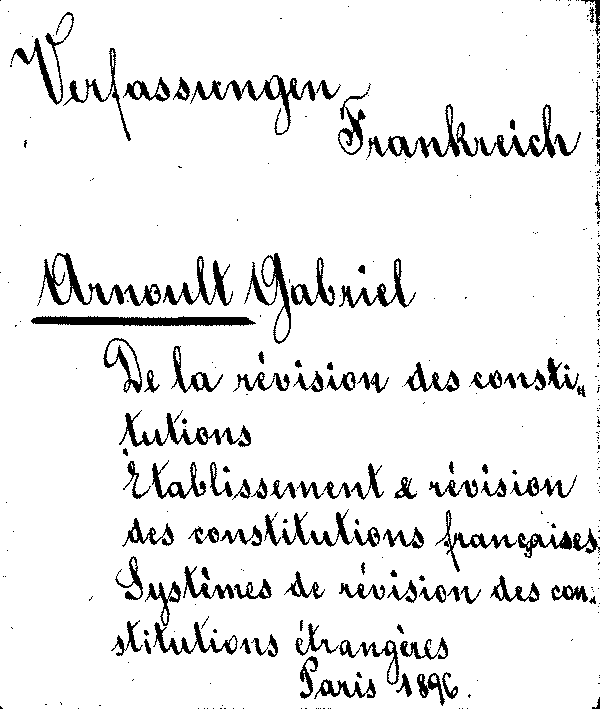 Verfassungen
Frankreich
Arnoult Gabriel
De la révision des consti„
tutions
Établissement & révision
des constitutions françaises
Systèmes de révision des con„
stitutions étrangères
Paris 1896.